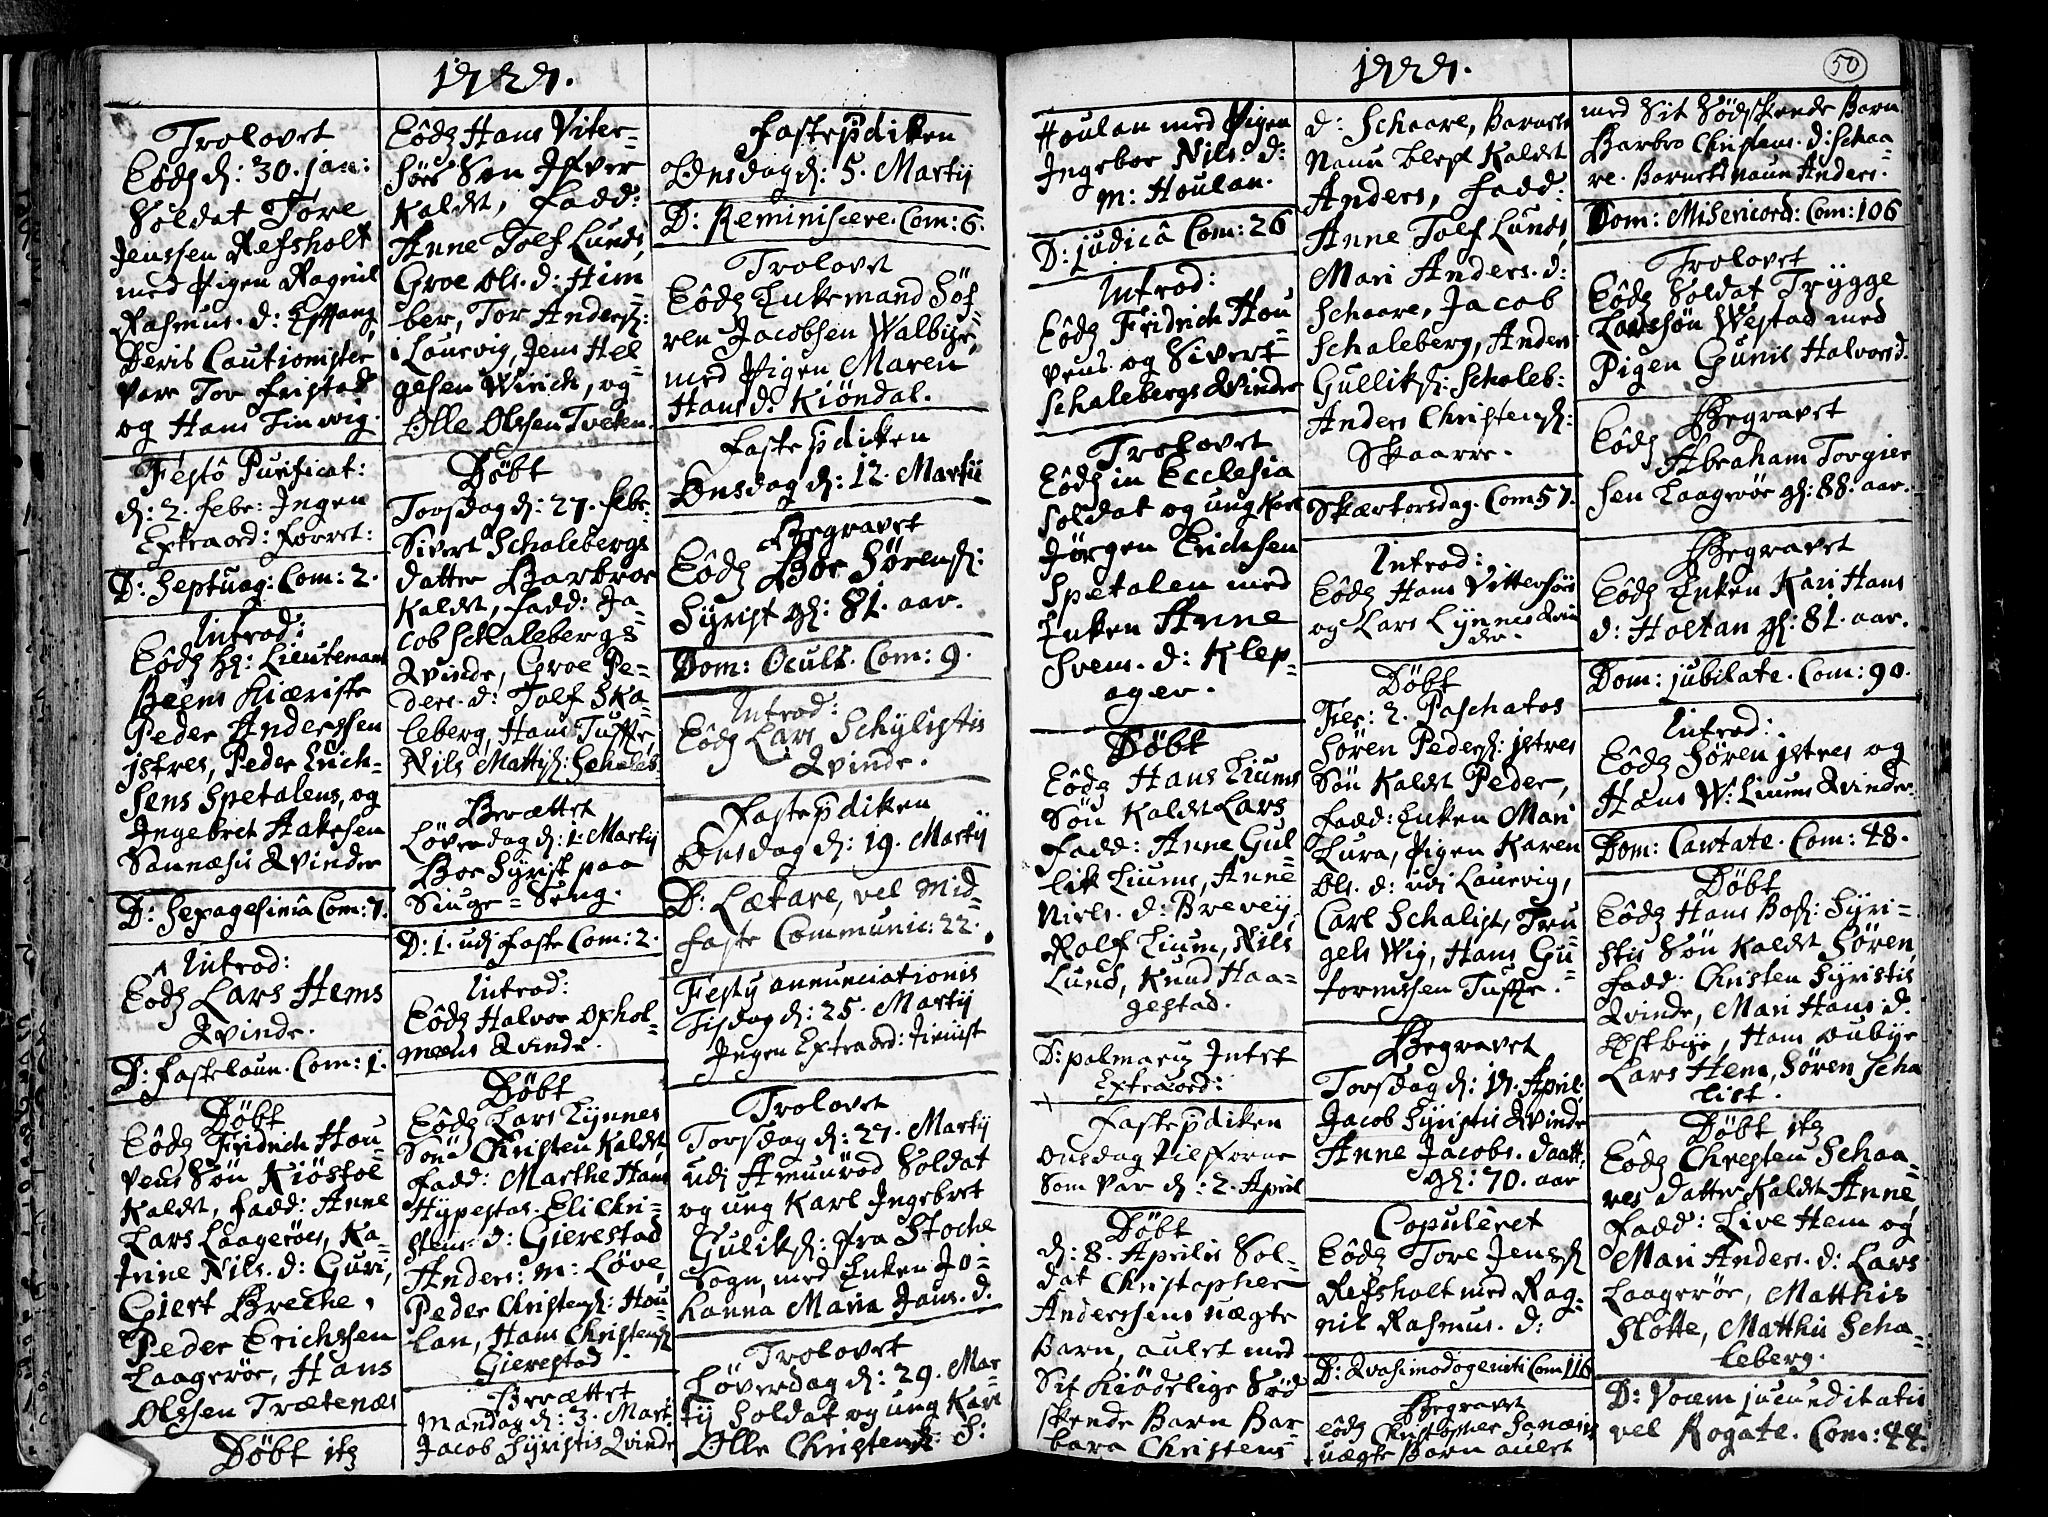 1727.
Trolovet
Eôdẽ d: 30. jan:
Soldat Tore
Jenssen Refsholt
med Pigen Ragnil
Rasmus. d:
Deris Cautionister
vare Tor Fristad
og Hans Linvig.
Festô Purificat:
d: 2. febr: Ingen
Extraord: forret:
D: Septuag: Com: 2.
Introd:
Eôdẽ Hr: Lieutenant
Beems Kiæriste
Peder Anderssen
jstres, Peder Erich-
sens Spetalens, og
Ingebret Hakesen
Sannæsis Qvinder
D: Sexagesima Com: 7.
Introd:
Eodẽ Lars Hems
Qvinde.
D: Fastelaun. Com: 1.
Döbt
Eôdẽ Fridrich Hou=
vens Sön Kiöstol
Kaldt, fadd: Anne
Lars Laageröes, Ka-
trine Nils. d: Guri,
Giert Breche,
Peder Erichssen
Laageröe, Hans
Olssen Trætenæs
Döbt itẽ
Eôdẽ Hans Viter=
söes Sön Ifver
Kaldt, Fadd:
Anne Tolf Lunds,
Groe Ols. d: Him=
ber, Tor Anders:
i Laurvig, Jens Hel=
gesen Wirich, og
Olle Olssen Tveten.
Döbt
Torsdag d: 27. febr:
Sivert Schalebergs
datter Barbroe
Kaldt, fadd: Ja-
cob Schalebergs
Qvinde, Groe Pe-
ders. d: Tolf Ska-
leberg, Hans Tuffte
Nils Matty: Schaleb.
Berættet
Löverdag d: 1. Martij
Boe Syrist paa
Siuge=Seng.
D: 1. udj faste Com: 2.
Introd:
Eôdẽ Halvor Oxhol-
mens Qvinde.
Döbt
Eôdẽ Lars Lynnes
Sön Christen Kaldt,
fadd: Marthe Hans
Hypestas. Eli Chri=
stens. d: Gierestad
Anders: m: Löve,
Peder Christens: Hou=
lan, Hans Christens
Gierestad.
Berættet
Mandag d: 3. Mart:
Jacob Syristis Qvinde
Fasteprdiken
Onsdag d: 5. Martij
D: Reminiscere. Com: 6.
Trolovet
Eôdẽ Enkemand Söf=
ren Jacobsen Walbÿe,
med Pigen Maren
Hans d. Kiöndal.
Fasteprdiken
Onsdag d: 12. Martii
Begravet
Eôdẽ Boe Sörens:
Syrist gl: 81. aar.
Dom: Oculi. Com: 9.
Introd:
Eôdẽ Lars Schylistis
Qvinde.
Fasteprdiken
Onsdag d: 19. Martij
D: Lætare, vel Mid=
faste Communic: 22.
Festÿ annunciationis
Tisdag d: 25. Martij
Ingen Extraord: Tieniist
Trolovet
Torsdag d: 27. Martij
udj Amunröd Soldat
og ung Karl Ingebret
Guliks: fra Stoche
Sogn, med Enken Jo=
hanna Maria Jans. d.
Trolovet
Löverdag d: 29. Mar=
tij Soldat og ung Karl
Olle Christens: S:
1727.
50
Houlan med Pigen
Ingebor Nils: d:
m: Houlan.
D: judicâ Com: 26
Introd:
Eôdẽ Fridrich Hou=
vens og Sivert
Schalebergs Qvinde
Trolovet
Eôdẽ in Ecclesia
Soldat og ung Karl
Jörgen Erichsen
Spetalen med
Enken Anne
Svens. d: Klep-
ager.
Döbt
Eôdẽ Hans Liums
Sön Kaldt Lars
fadd: Anne Gul=
lik Liums, Anne
Niels. d: Brevey,
Rolf Lium, Nils
Lund, Knud Haa=
gestad.
D: palmarũ Intet
Extraord:
Fasteprdiken
Onsdag Tilforne
Som var d: 2. April
Döbt
d: 8. Aprilis Sol=
dat Christopher
Anderssens uægte
Barn, aulet med
Sit Kiödelige Söd
skende Barn Bar=
bara Christens
d: Schaare, Barnets
Naun blef Kaldt
Anders, fadd:
Anne Tolf Lunds,
Mari Anders. d:
Schaare, Jacob
Schaleberg, Anders
Gulliks: Schaleb:
Anders Christens:
Skaarre.
Skærtorsdag. Com 57.
Introd:
Eôdẽ Hans Vittersöes
og Lars Lynnes Qvin
der.
Döbt
Fer: 2. Paschatos
Sören Peders: jstres
Sön Kaldt Peder,
fadd: Enken Mari
Lura, Pigen Karen
Ols. d: udj Laurvig,
Carl Schalist, Tru=
gels Wig, Hans Gu=
tormssen Tuffte.
Begravet
Torsdag d: 17. April:
Jacob Syristis Qvinde
Anne Jacobs. daatt:
gl: 70. aar
Copuleret
Eôdẽ Tore Jens
Refsholt med Rag=
nil Rasmus. d:
D: Qvasimodogeniti Com 116
Begravet
Eôdẽ Christopher Sanæsis
uægte Barn aulet
med Sit Södskende Barn
Barbro Christens. d: Schaa=
re. Barnets naun Anders.
Dom: Misericord: Com: 106
Trolovet
Eôdẽ Soldat Trÿgge
Larssön Westad med
Pigen Gunil Halvors d.
Begravet
Eôdẽ
Abraham Torgier
sen Laageröe gl: 88. aar.
Begravet
Eôdẽ Enken Kari Hans
d: Holtan gl: 81. aar.
Dom: jubilate. Com: 90.
Introd:
Eôdẽ Sören jstres og
Hans W: Liums Qvinder.
Dom: Cantate. Com: 48.
Döbt
Eôdẽ Hans Bos: Syri-
stis Sön Kaldt Sören,
fadd. Christen Syristis
Qvinde, Mari Hans. d.
Østbye, Hans Oubÿe
Lars Hem, Sören Scha
list.
Döbt itẽ
Eôdẽ Chresten Schaa=
res datter Kaldt Anne
Fadd: Live Hem og
Mari Anders. d: Lars
Laageröe, Matthis
Slotte, Matthis Scha-
leberg.
D: Vocem jucunditatis
vel Rogate. Com: 44.